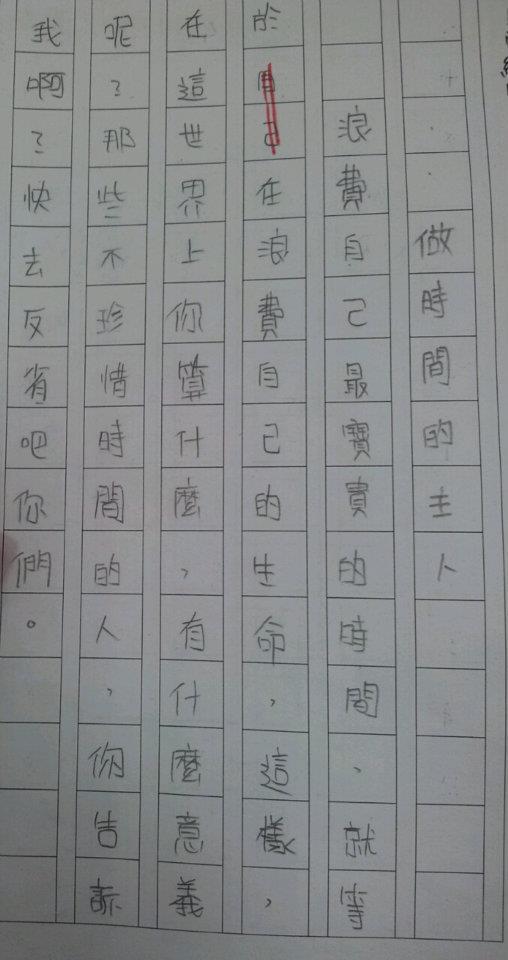 做時間的主人
浪費自己最寶貴的時間,就等
於自己在浪費自己的生命,這樣,
在這世界上你算什麼,有什麼意義
呢?那些不珍惜時間的人,你告訴
我啊?快去反省吧你們。